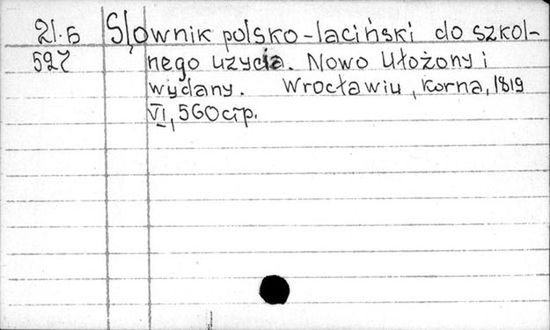 21.5 Słownik polsko-laciński do szkol-
527 nego uzycia. Nowo Ułożony i
wydany. Wrocławiu, Korna, 1819
VI, 560 стр.